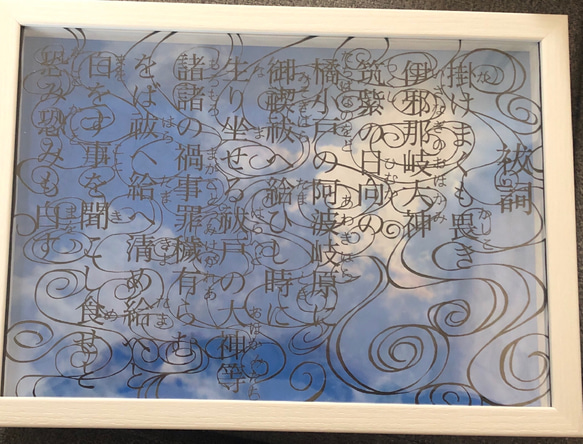 祓詞
掛けまくも畏き
伊邪那岐大神
筑紫の日向の
橘小戸の阿波岐原に
御禊祓へ給ひし時に
生り坐せる祓戸の大神等
諸諸の禍事罪穢有らむ
をば祓へ給へ清め給へと
白をす事を聞こし食せと
恐み恐みも白す